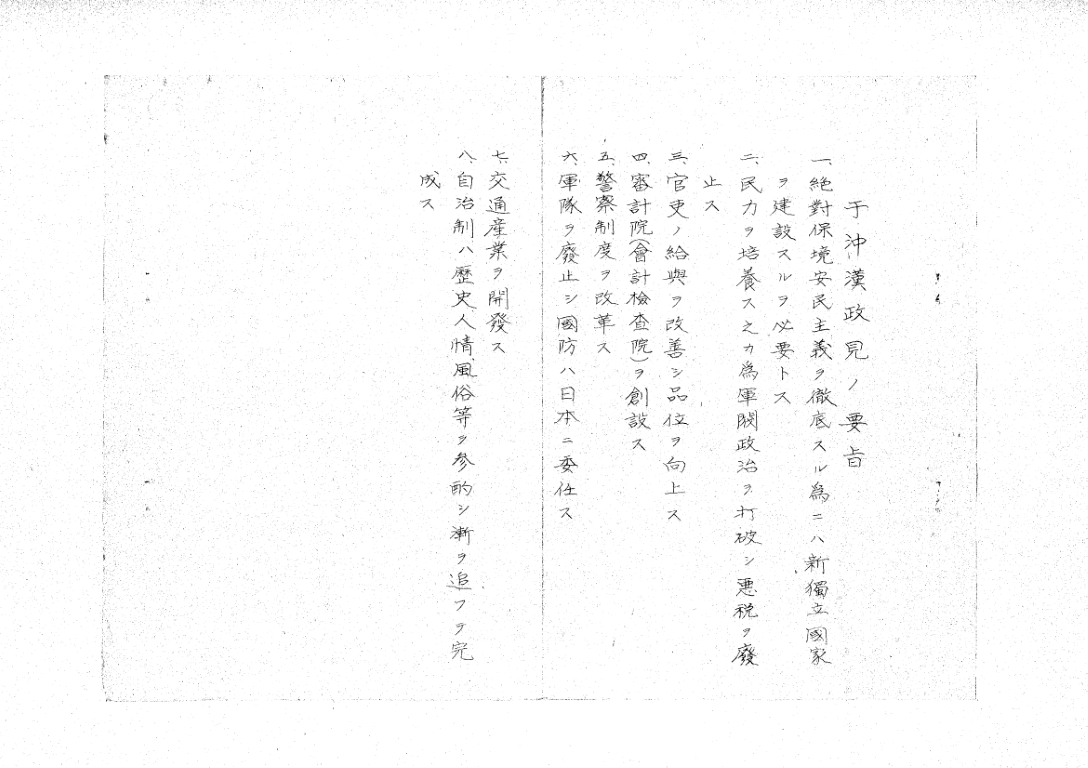 于沖漢政見ノ要旨
一、絶對保境安民主義ヲ徹底スル為ニハ新獨立國家
ヲ建設スルヲ必要トス
二、民力ヲ培養ス之カ為軍閥政治ヲ打破シ悪税ヲ廢
止ス
三、官吏ノ給與ヲ改善シ品位ヲ向上ス
四、審計院(會計檢査院)ヲ創設ス
五、警察制度ヲ改革ス
六、軍隊ヲ廢止シ國防ハ日本ニ委任ス
七、交通産業ヲ開發ス
八、自治制ハ歷史人情風俗等ヲ參酌シ漸ヲ追フテ完
成ス